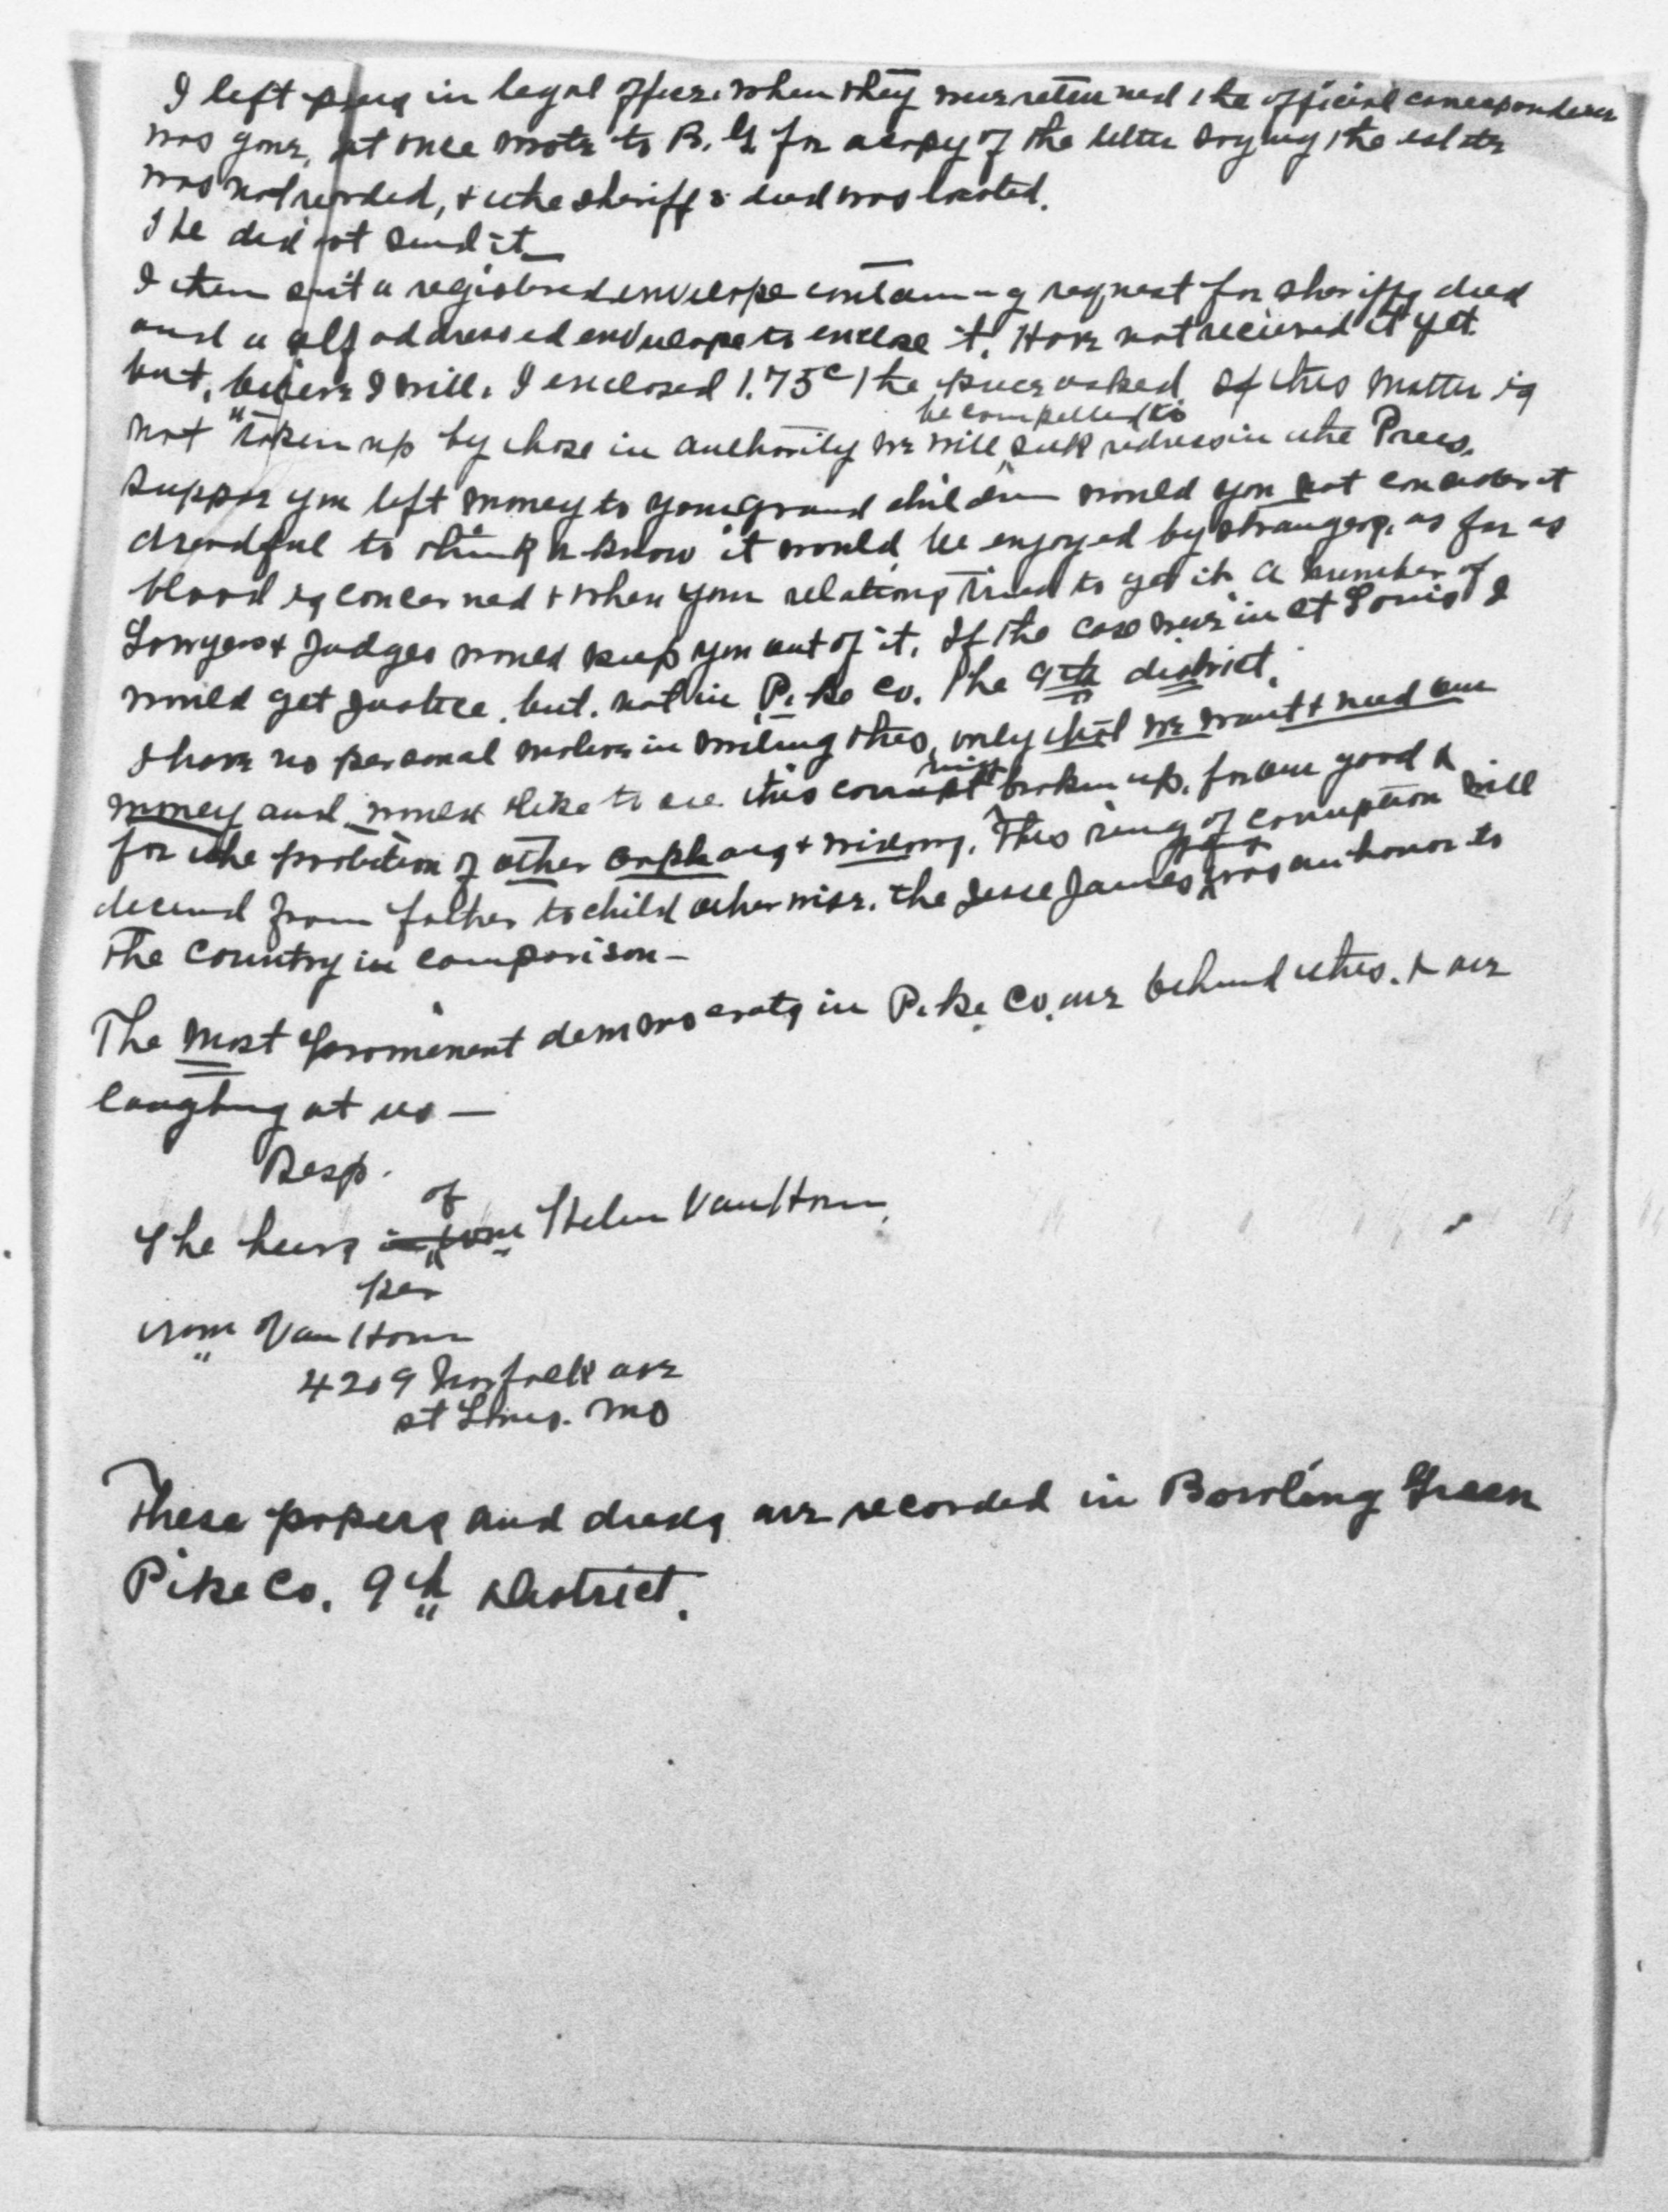 I left papers in legal office. when they were returned the official correspondence
was gone, at once wrote to B. G. for a copy of the letter saying the estate
was not recorded, & the sheriffs deed was located.
He did not send it
I then sent a registered envelope containing request for sheriffs deed
and a self addressed envelope to enclose it. Have not recieved it yet
but, believe I will. I enclosed 1.75c the price asked If this matter is
not "taken up by those in authority we will be compelled to seek redress in the Press.
Suppose you left money to your grand children would you not consider it
dreadful to think or know it would be enjoyed by strangers, as far as
blood is concerned & when your relations tried to get it a number of
Lawyers & Judges would keep you out of it. If the case were in St Louis I
would get justice, but. not in Pike Co. the 9th district.
I have no personal motive in writing this, only that we want & need our
money and would like to see this corrupt ring broken up, for our good &
for the protection of other orphans & widows. This ring of corruption will
decend from father to child otherwise. the Jesse James was an honor to
the country in comparison -
The most prominent demmocrats in Pike Co. are behind this. & are
laughing at us —
Resp.
The heirs of Helen Van Horn,
per
Wm Van Horn
4209 Norfolk ave
St Louis. Mo
These papers and deeds are recorded in Bowling Green
Pike Co. 9th District.